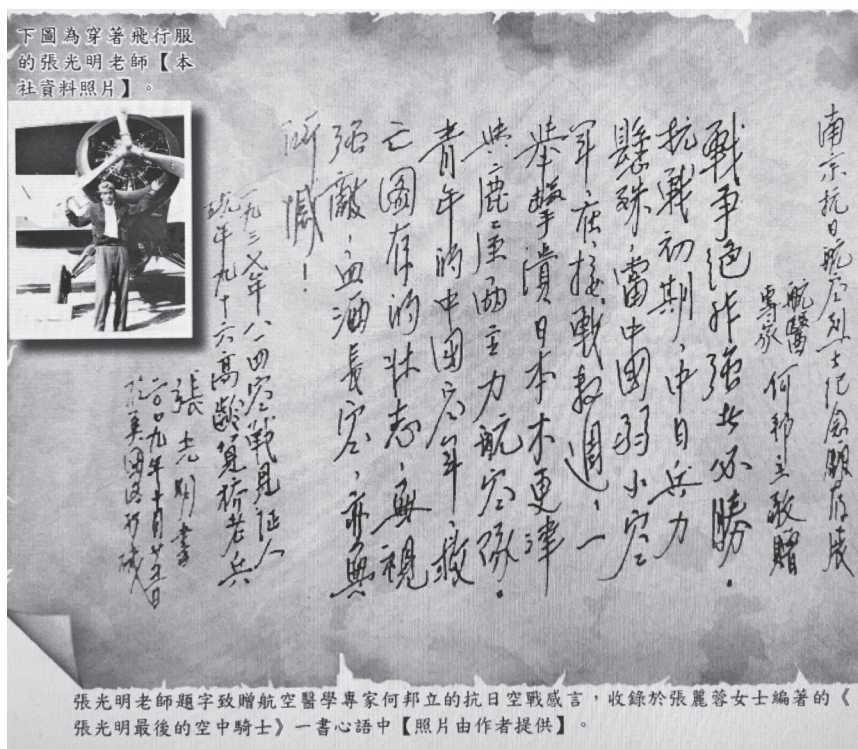 下圖為穿著飛行服
的張光明老師【本
社資料照片】。
南京抗日航空烈士紀念館存展
航醫
專家
何邦立敬贈
戰爭絕非強者必勝。
抗戰初期,中日兵力
懸殊,當中國弱小空
軍在接戰數週,一
舉擊潰日本木更津
與鹿屋兩主力航空隊。
青年的中國空軍,救
亡圖存的壯志,無視
強敵,血洒長空,亦無
所憾!
一九三七年八一四空戰見証人
現年九十六高齡筧橋老兵
張光明書
二〇〇九年十月廿五日
於美國洛杉磯
張光明老師題字致贈航空醫學專家何邦立的抗日空戰感言,收錄於張麗蓉女士編著的《
張光明最後的空中騎士》一書心語中【照片由作者提供】。